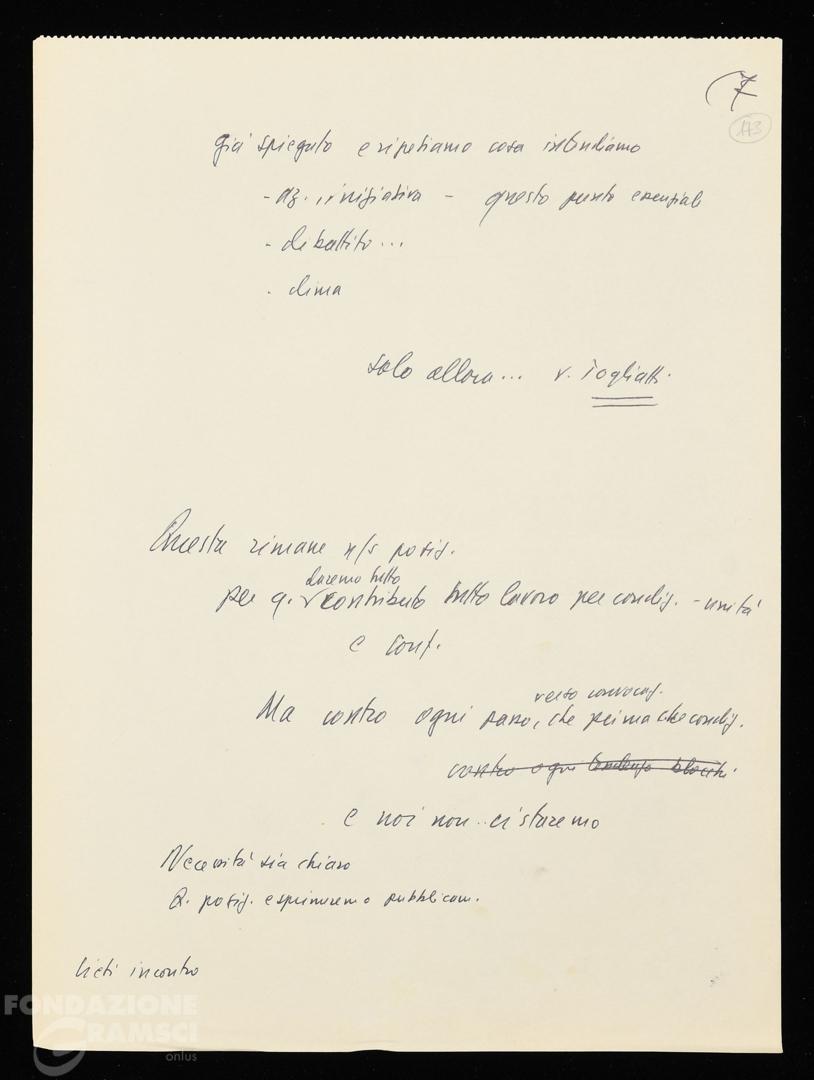 (7
173
già spiegato e ripetiamo cosa intendiamo
- az. iniziativa - questo punto essenziale
- dibattito...
- clima
solo allora... v. Togliatti.
Questa rimane n/s posiz.
daremo tutto
per q. contributo tutto lavoro per condiz. - unità
e conf.
verso convocaz.
Ma contro ogni passo, che prima che condiz.
contro ogni tendenza blocchi.
e noi non ci staremo
Necessità sia chiaro
Q. posiz. esprimeremo pubblicam.
lieti incontro
FONDAZIONE
GRAMSCI
onlus